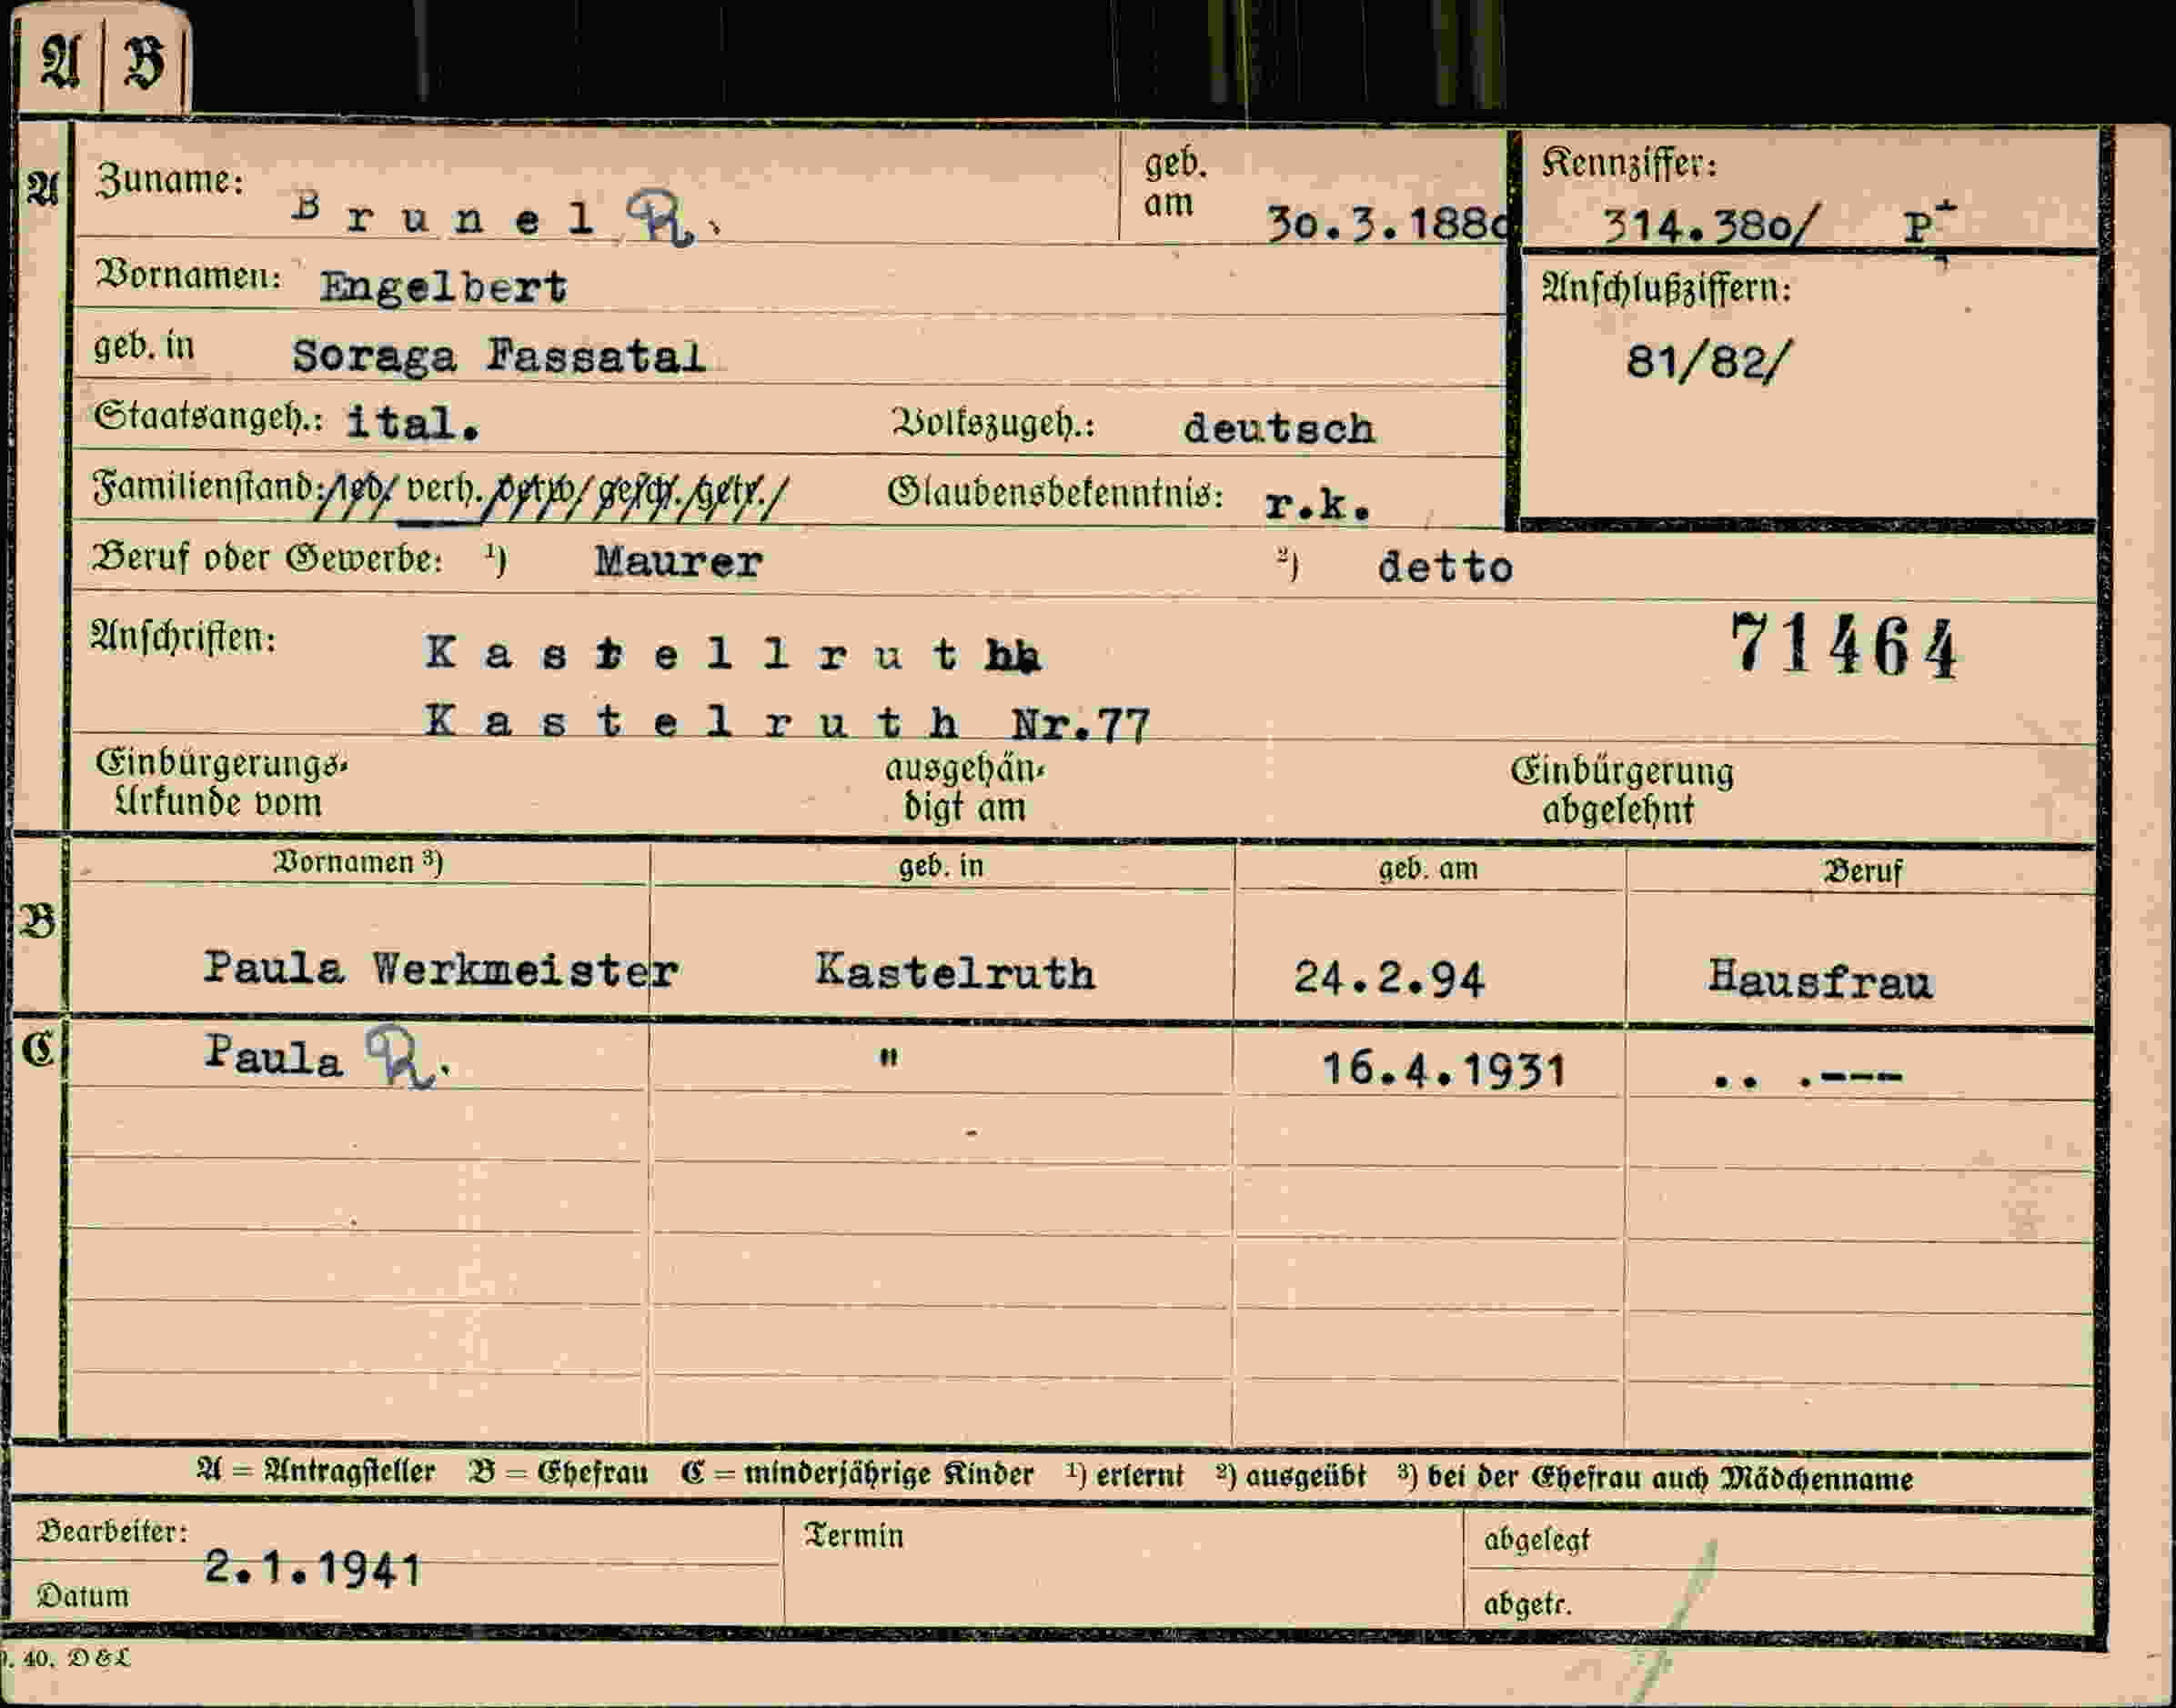 A B
A Zuname: Brunel R. geb. am 30.3.188o Kennziffer: 314.38o/ P+
Vornamen: Engelbert Anschlußziffern:
geb. in Soraga Fassatal 81/82/
Staatsangeh.: ital. Volkszugeh.: deutsch
Familienstand: led/ verh. verw/ gesch./getr./ Glaubensbekenntnis: r.k.
Beruf oder Gewerbe: ¹) Maurer ²) detto
Anschriften: Kastellruth 71464
Kastelruth Nr.77
Einbürgerungs- ausgehän- Einbürgerung
Urkunde vom digt am abgelehnt
Vornamen ³) geb. in geb. am Beruf
B Paula Werkmeister Kastelruth 24.2.94 Hausfrau
C Paula R. " 16.4.1931 .. .---
A = Antragsteller B = Ehefrau C = minderjährige Kinder ¹) erlernt ²) ausgeübt ³) bei der Ehefrau auch Mädchenname
Bearbeiter: Termin abgelegt
2.1.1941
Datum abgetr.
40. D & L